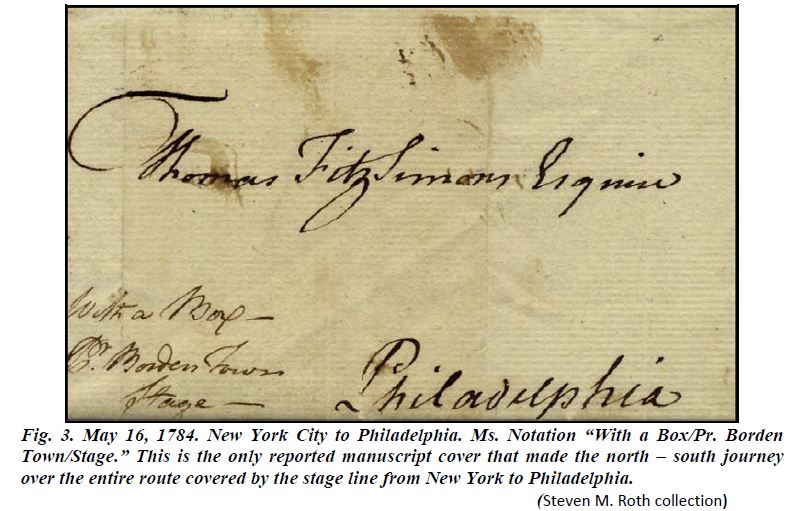 Thomas FitzSimons Esquire
With a Box —
Pr. Borden Town
Stage —
Philadelphia
Fig. 3. May 16, 1784. New York City to Philadelphia. Ms. Notation “With a Box/Pr. Borden
Town/Stage.” This is the only reported manuscript cover that made the north – south journey
over the entire route covered by the stage line from New York to Philadelphia.
(Steven M. Roth collection)